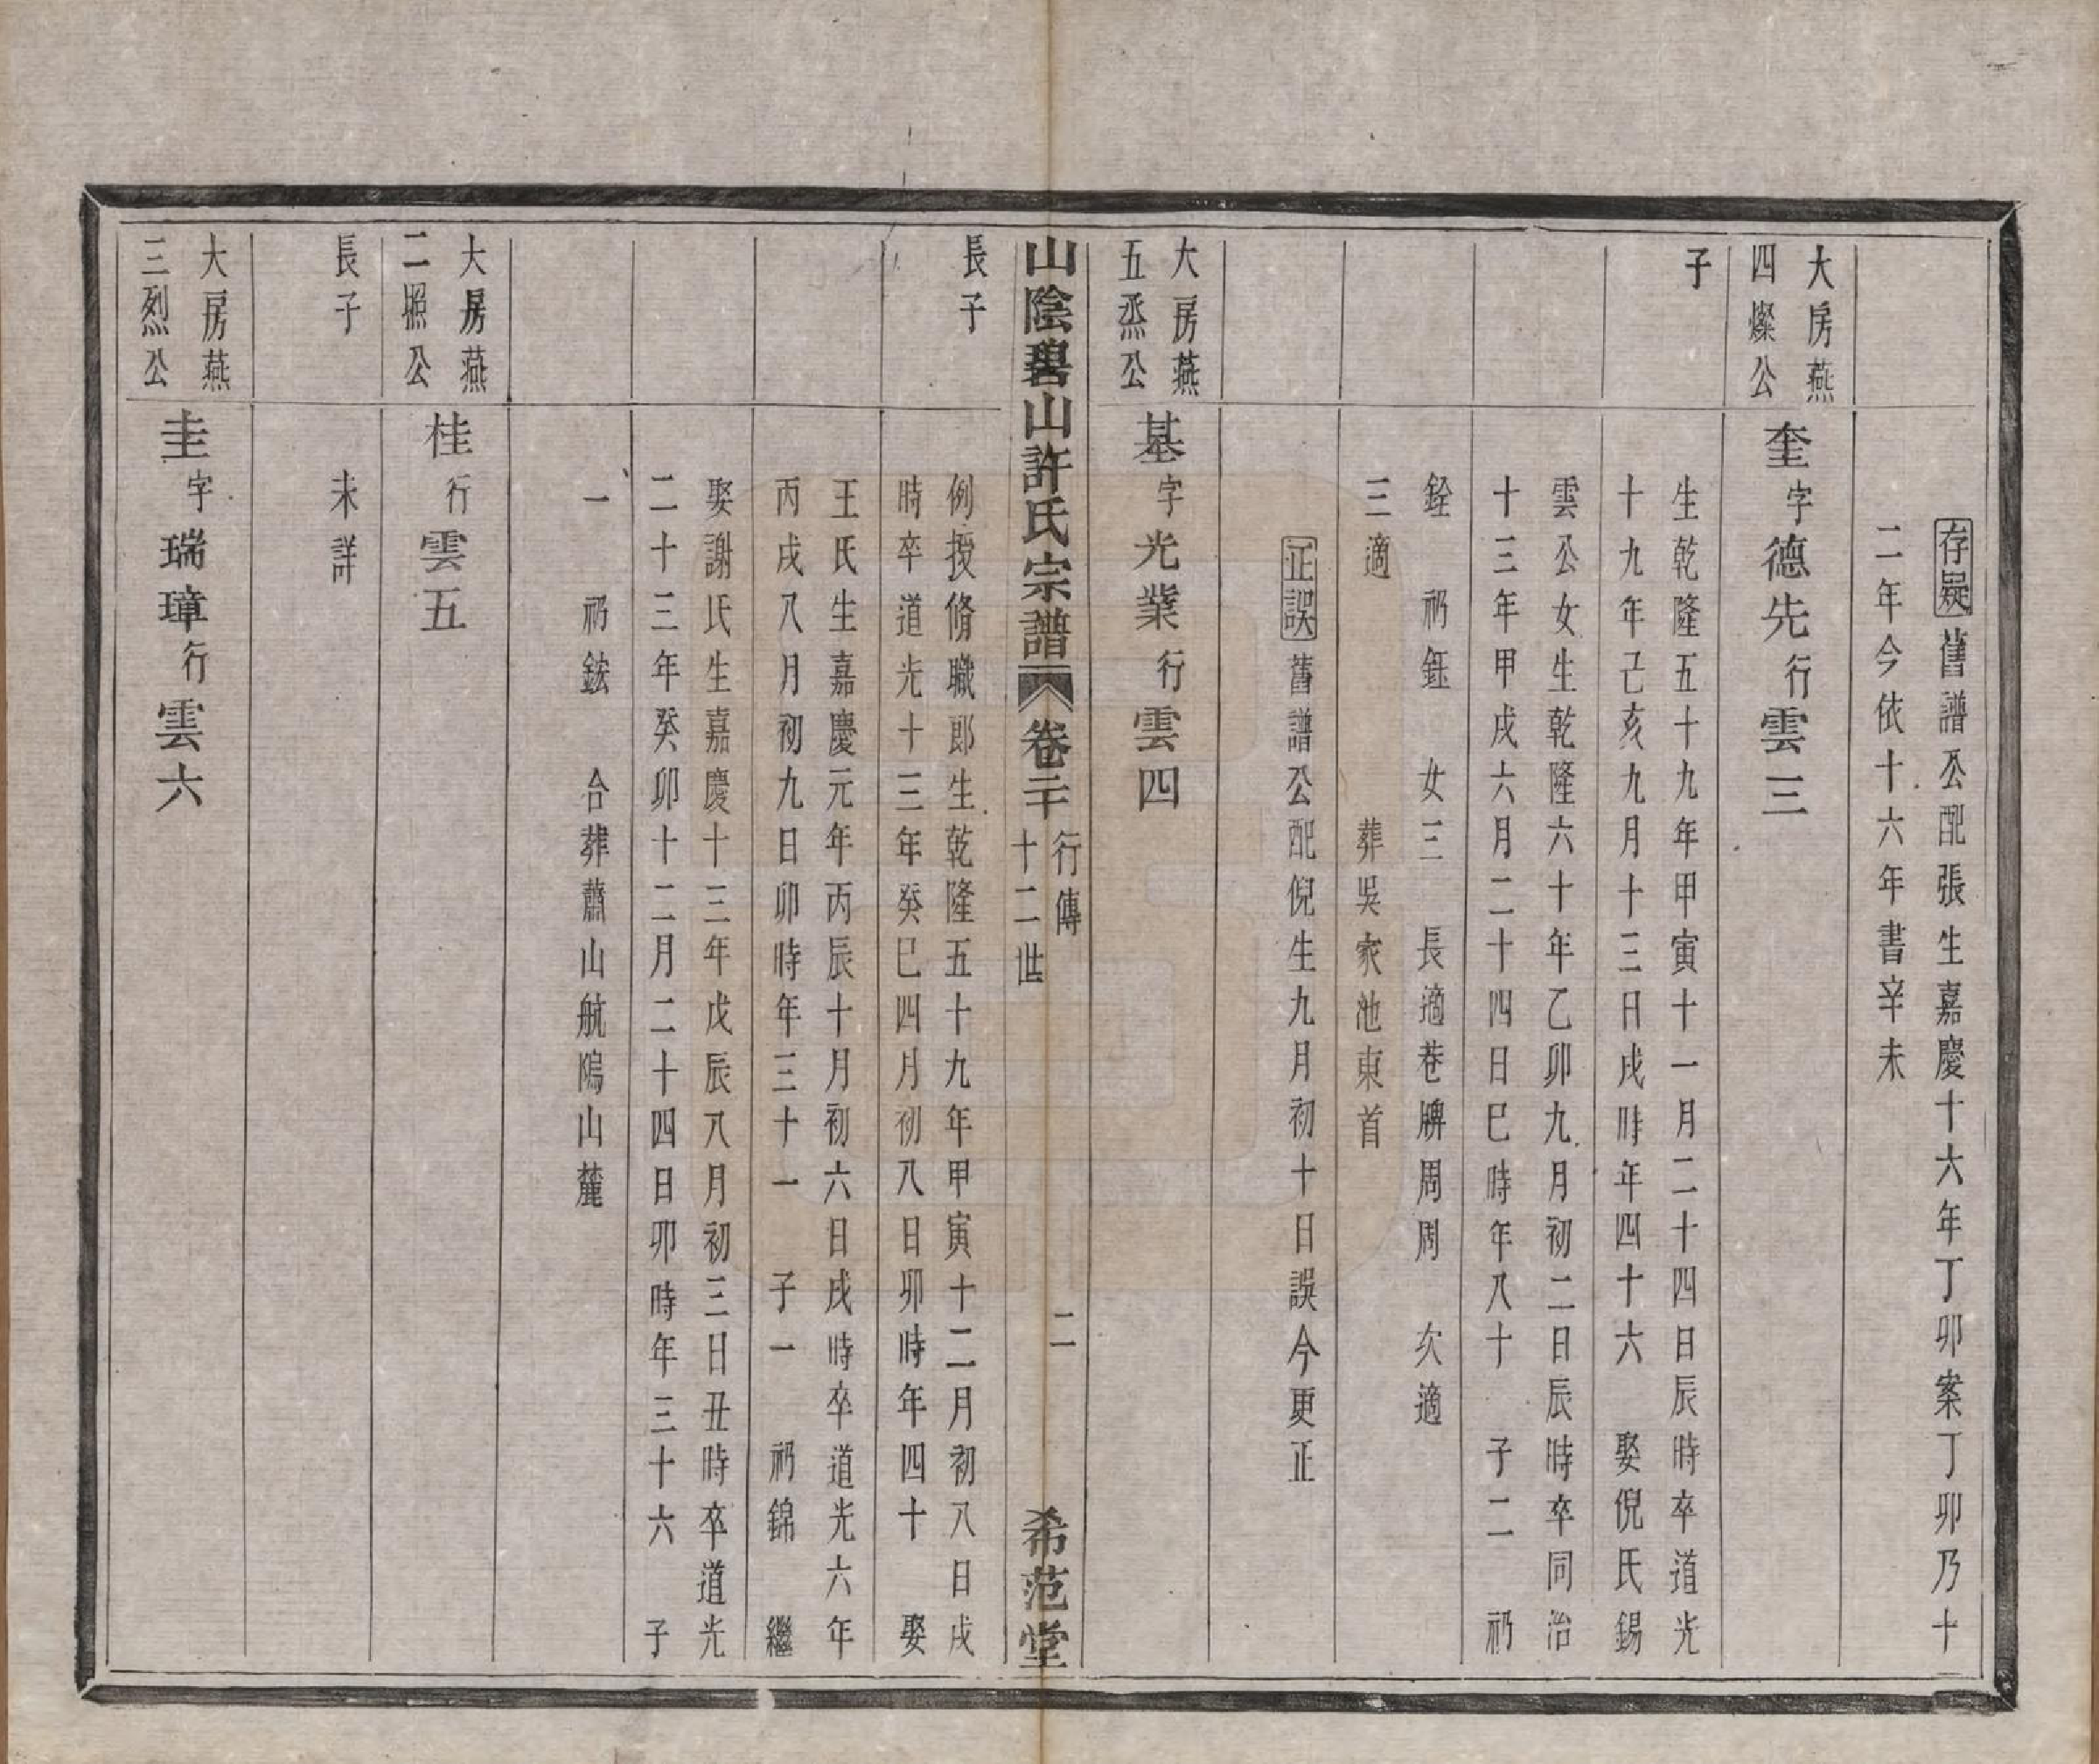 存疑舊譜公配張生嘉慶十六年丁卯案丁卯乃十
二年今依十六年書辛未
大房燕
四燦公
奎字德先行雲三
子
生乾隆五十九年甲寅十一月二十四日辰時卒道光
十九年己亥九月十三日戌時年四十六　娶倪氏錫
雲公女生乾隆六十年乙卯九月初二日辰時卒同治
十三年甲戌六月二十四日巳時年八十　子二　礽
銓　礽鈺　女三　長適巷牌周周　次適
三適　　　　葬吳家池東首
正誤舊譜公配倪生九月初十日誤今更正
大房燕
五烝公
基字光業行雲四
山陰碧山許氏宗譜　卷二十　行傳　十二世　二　希范堂
長子
例授脩職郎生乾隆五十九年甲寅十二月初八日戌
時卒道光十三年癸巳四月初八日卯時年四十　娶
王氏生嘉慶元年丙辰十月初六日戌時卒道光六年
丙戌八月初九日卯時年三十一　子一　礽錦　繼
娶謝氏生嘉慶十三年戊辰八月初三日丑時卒道光
二十三年癸卯十二月二十四日卯時年三十六　子
一　礽鋐　合葬蕭山航塢山麓
大房燕
二照公
桂行雲五
長子
未詳
大房燕
三烈公
圭字瑞璋行雲六